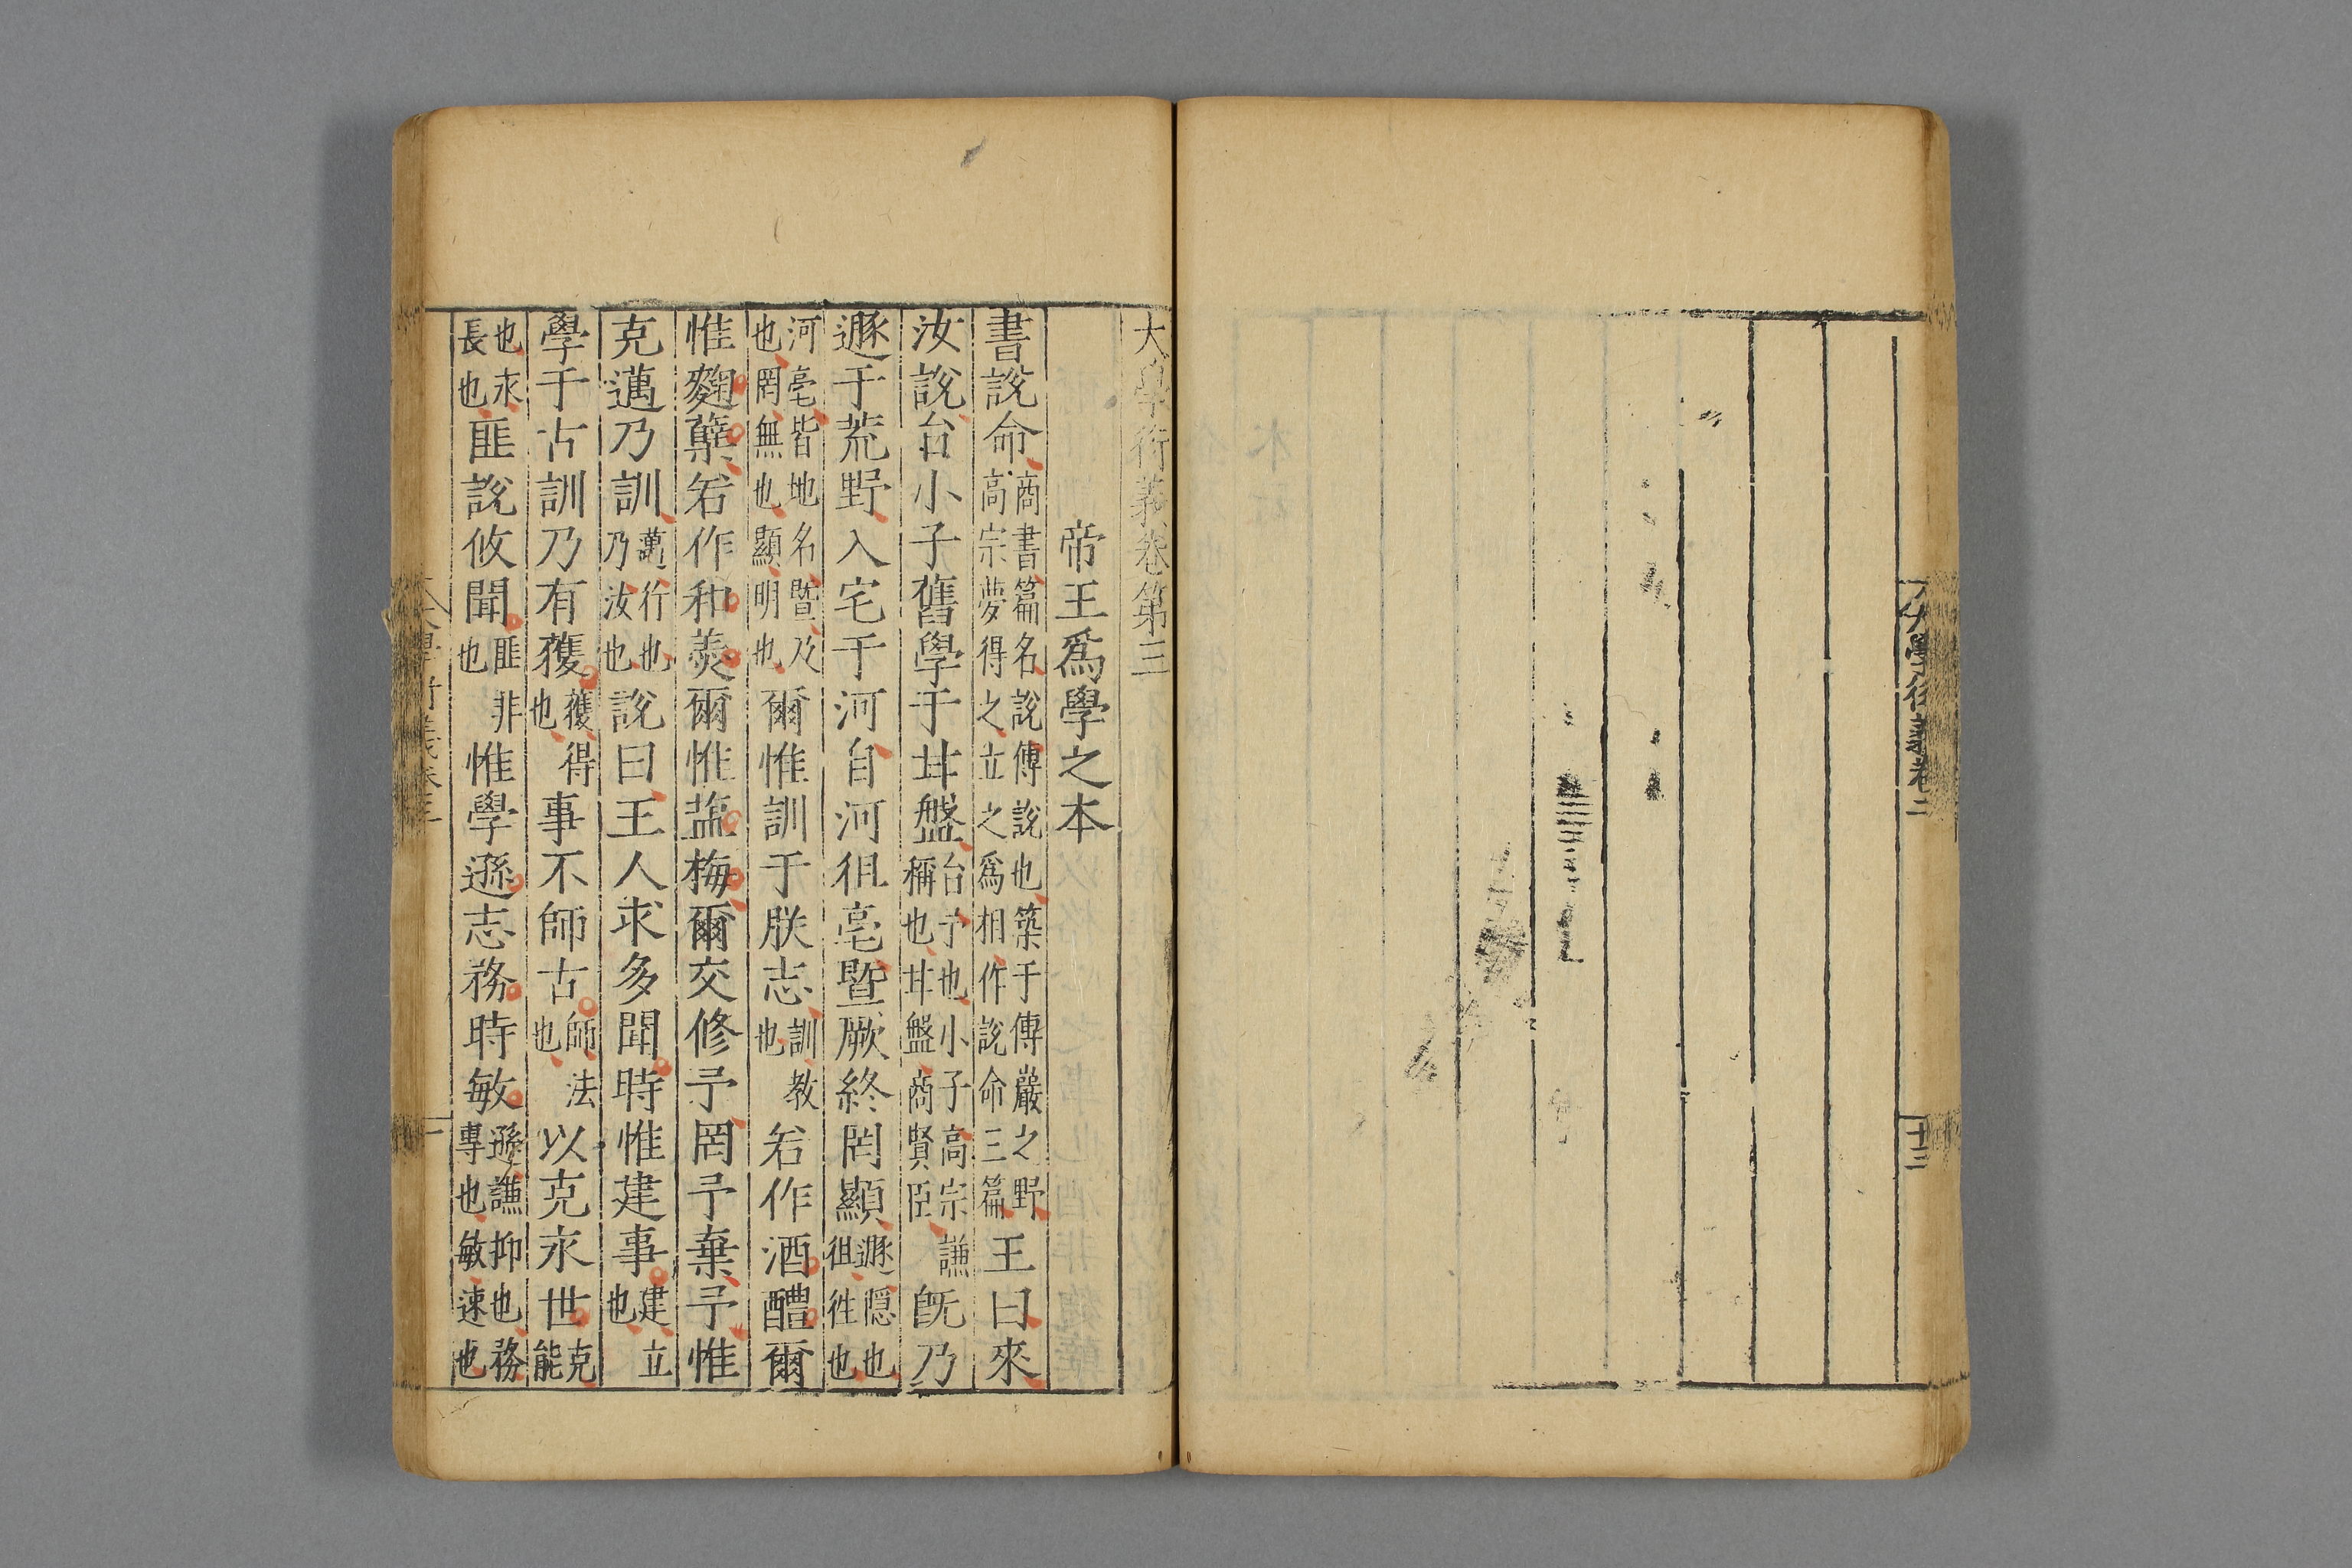 大學衍義卷二
十三
大學衍義卷第三
帝王爲學之本
書說命商書篇名說傅說也築于傅巖之野高宗夢得之立之爲相作說命三篇王曰來
汝說台小子舊學于甘盤台予也小子高宗謙稱也甘盤商賢臣旣乃
遯于荒野入宅于河自河徂亳曁厥終罔顯遯隱也徂徃也
河亳皆地名曁及也罔無也顯明也爾惟訓于朕志訓教也若作酒醴爾
惟麴糵若作和羮爾惟塩梅爾交修予罔予棄予惟
克邁乃訓邁行也乃汝也說曰王人求多聞時惟建事建立也
學于古訓乃有獲獲得也事不師古師法也以克永世克能
也永長也匪說攸聞匪非也惟學遜志務時敏遜謙抑也務專也敏速也
大學衍義卷三
一